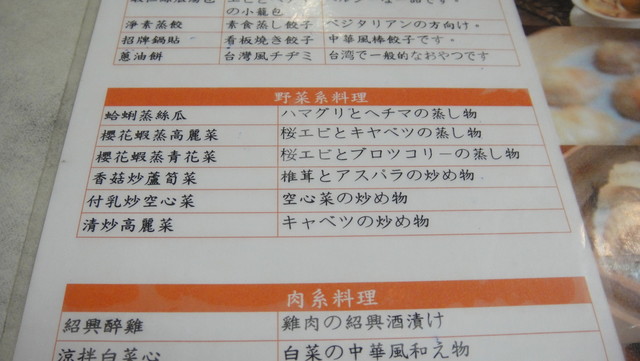 の小籠包
淨素蒸餃 素食蒸し餃子 ベジタリアンの方向け。
招牌鍋貼 看板焼き餃子 中華風棒餃子です。
蔥油餅 台灣風チヂミ 台湾で一般的なおやつです
野菜系料理
蛤蜊蒸絲瓜 ハマグリとヘチマの蒸し物
櫻花蝦蒸高麗菜 桜エビとキャベツの蒸し物
櫻花蝦蒸青花菜 桜エビとブロツコリーの蒸し物
香菇炒蘆筍菜 椎茸とアスパラの炒め物
付乳炒空心菜 空心菜の炒め物
清炒高麗菜 キャベツの炒め物
肉系料理
紹興醉雞 雞肉の紹興酒漬け
涼拌白菜心 白菜の中華風和え物